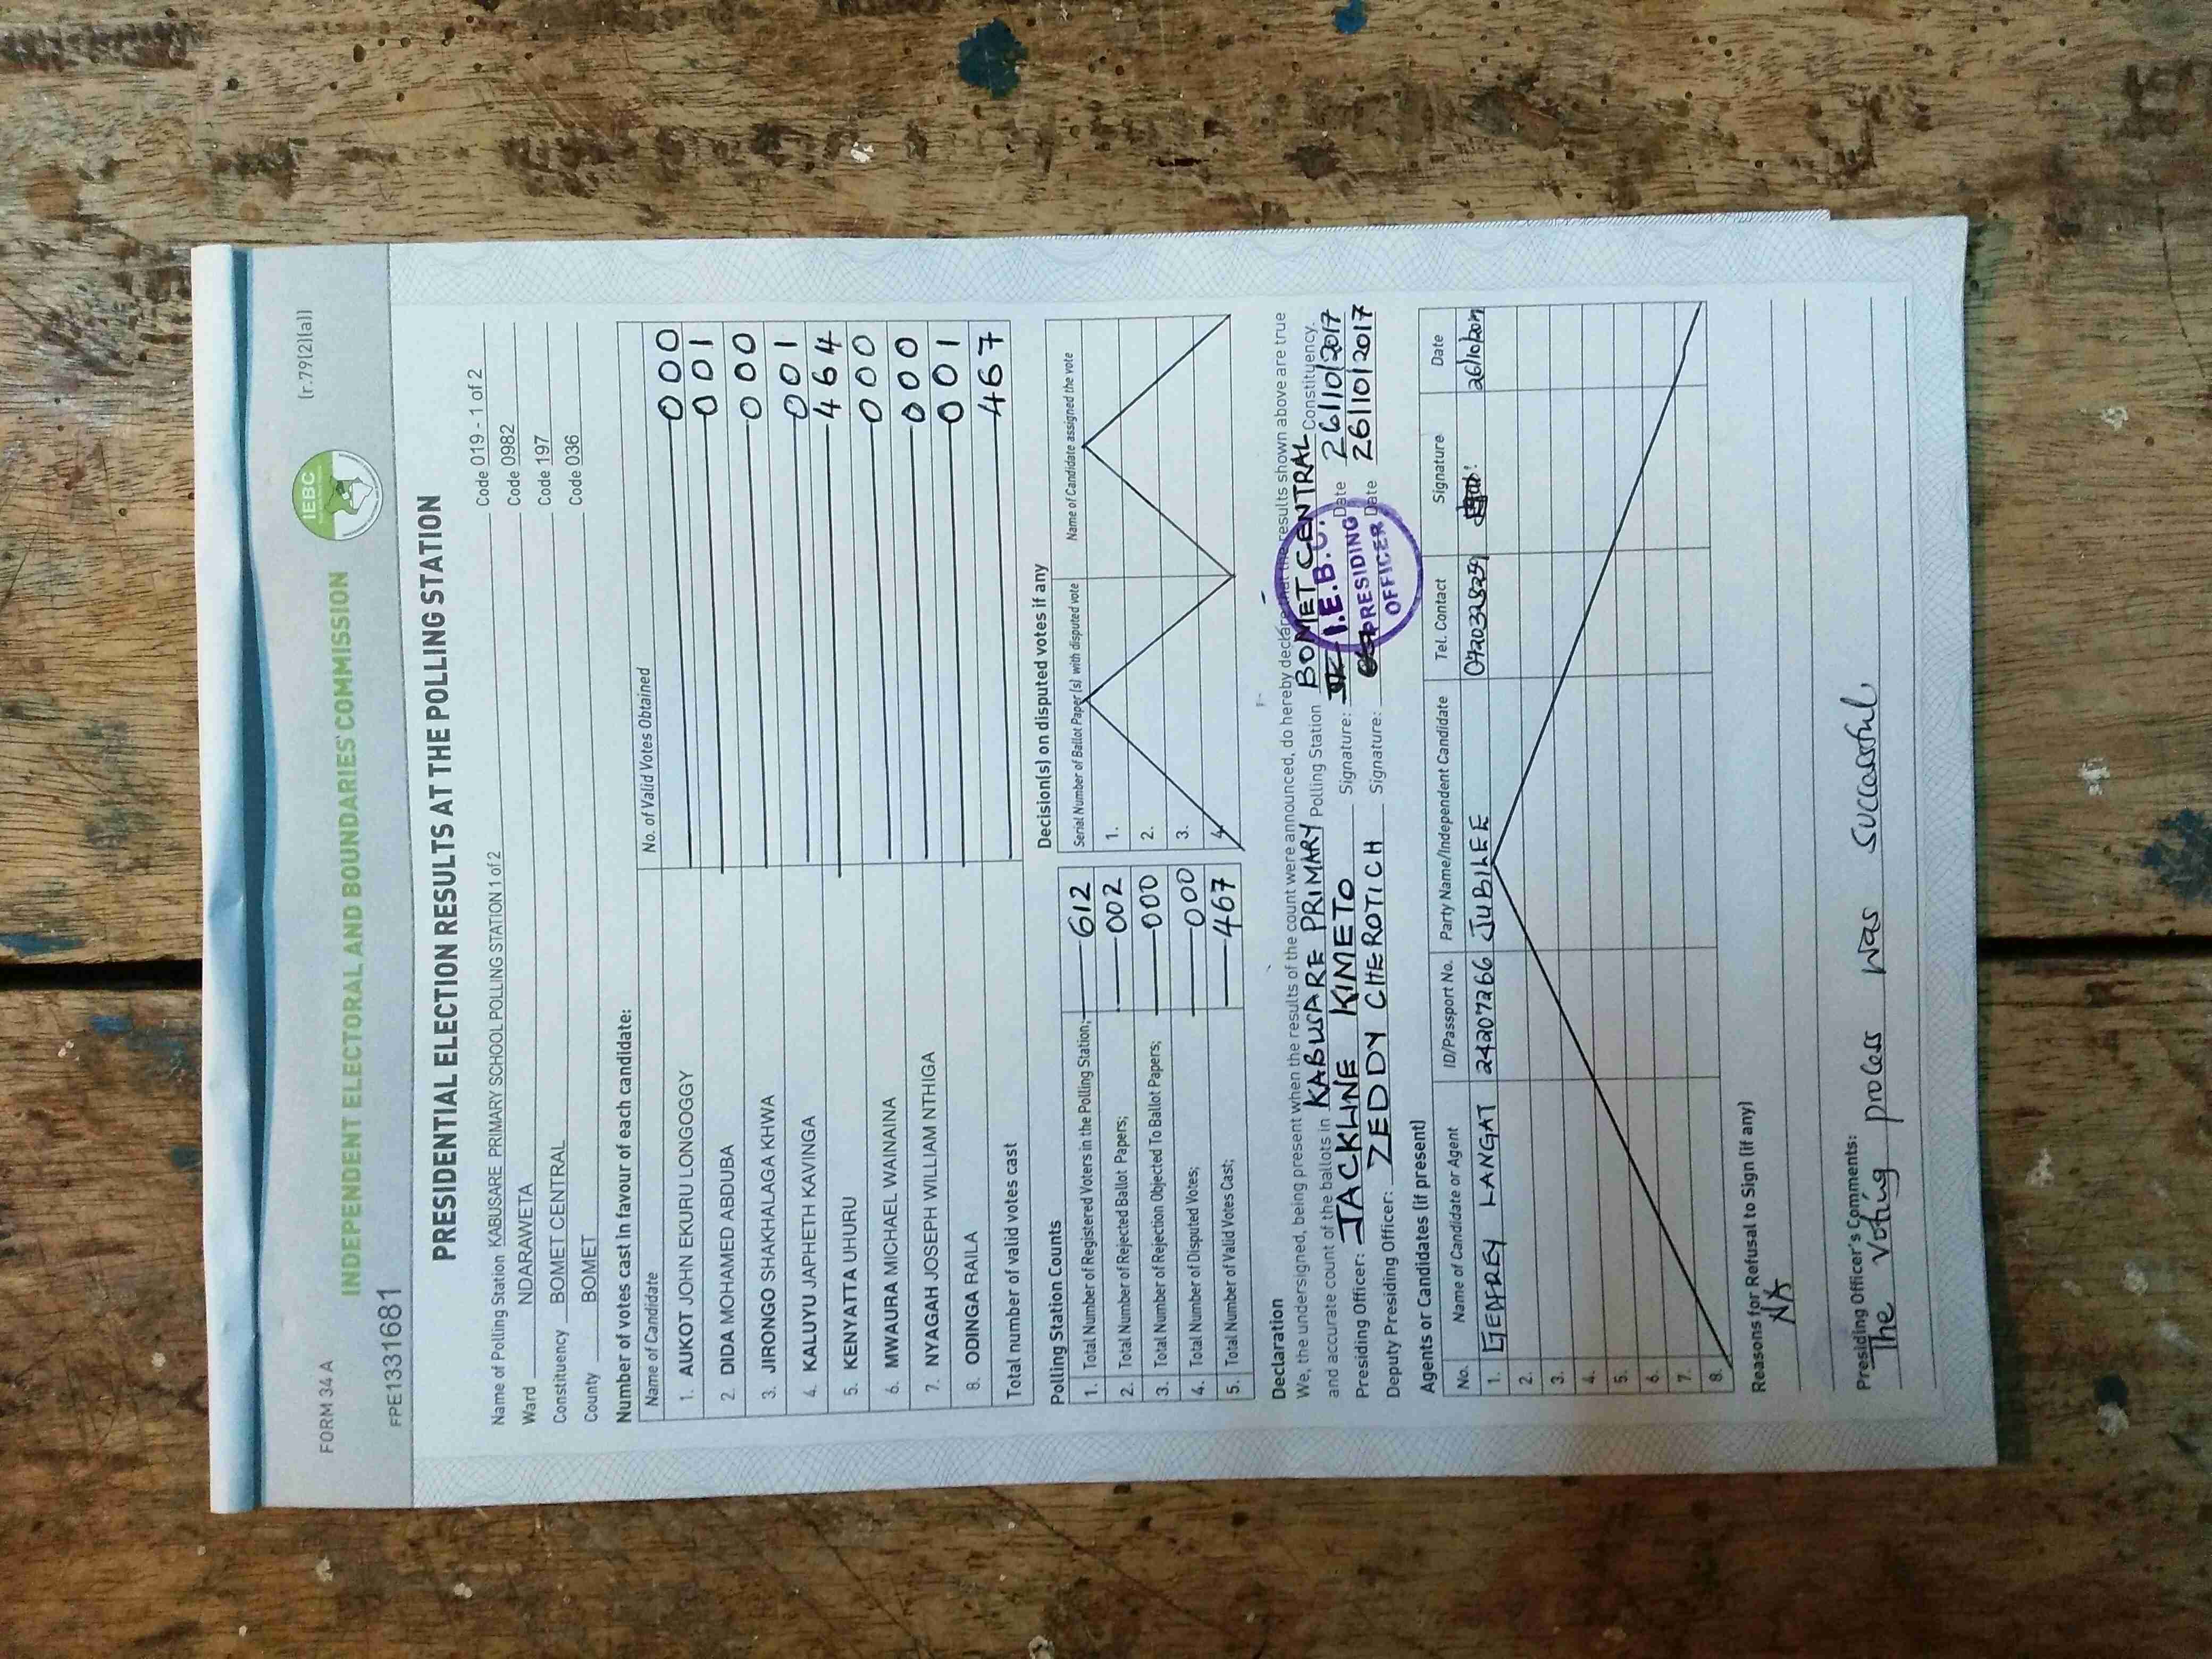 FORM 34 A
(r.79(2)(a))
IEBC
INDEPENDENT ELECTORAL AND BOUNDARIES COMMISSION
FPE1331681
PRESIDENTIAL ELECTION RESULTS AT THE POLLING STATION
Name of Polling Station KABUSARE PRIMARY SCHOOL POLLING STATION 1 of 2 Code 019 - 1 of 2
Ward NDARAWETA Code 0982
Constituency BOMET CENTRAL Code 197
County BOMET Code 036
Number of votes cast in favour of each candidate:
Name of Candidate No. of Valid Votes Obtained
1. AUKOT JOHN EKURU LONGOGGY 000
2. DIDA MOHAMED ABDUBA 001
3. JIRONGO SHAKHALAGA KHWA 000
4. KALUYU JAPHETH KAVINGA 001
5. KENYATTA UHURU 464
6. MWAURA MICHAEL WAINAINA 000
7. NYAGAH JOSEPH WILLIAM NTHIGA 000
8. ODINGA RAILA 001
Total number of valid votes cast 467
Polling Station Counts
1. Total Number of Registered Voters in the Polling Station; 612
2. Total Number of Rejected Ballot Papers; 002
3. Total Number of Rejection Objected To Ballot Papers; 000
4. Total Number of Disputed Votes; 000
5. Total Number of Valid Votes Cast; 467
Decision(s) on disputed votes if any
Serial Number of Ballot Paper(s) with disputed vote Name of Candidate assigned the vote
1.
2.
3.
4.
Declaration
We, the undersigned, being present when the results of the count were announced, do hereby declare that the results shown above are true
and accurate count of the ballots in KABUSARE PRIMARY Polling Station BOMET CENTRAL Constituency.
Presiding Officer: JACKLINE KIMETO Signature: Date 26/10/2017
Deputy Presiding Officer: ZEDDY CHEROTICH Signature: Date 26/10/2017
I.E.B.C.
PRESIDING
OFFICER
Agents or Candidates (if present)
No. Name of Candidate or Agent ID/Passport No. Party Name/Independent Candidate Tel. Contact Signature Date
1. LANGAT 24207266 JUBILEE 26/10/2017
2.
3.
4.
5.
6.
7.
8.
Reasons for Refusal to Sign (if any)
NA
Presiding Officer's Comments:
The voting process was successful.